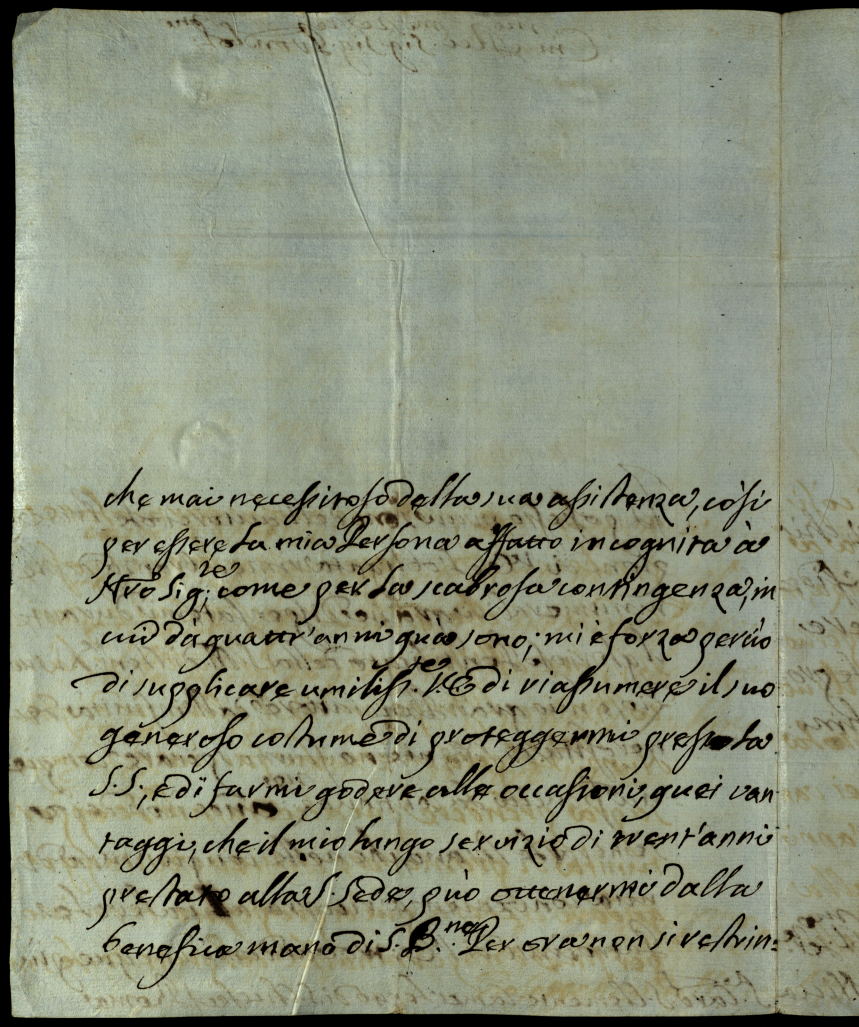 che mai necessitoso della sua assistenza, così
per essere la mia Persona affatto incognita à
Nro Sig.re; come per la scabrosa contingenza, in
cui da quattr'anni quà sono; mi è forza perciò
di supplicare umiliss.te V.E. di riassumere il suo
generoso costume di proteggermi presso la
S.S., e di farmi godere alle occasioni, quei van
taggi, che il mio lungo servizio di trent'anni
prestato alla S. Sede, può ottenermi dalla
benefica mano di S. B.ne Per ora non si restrin=